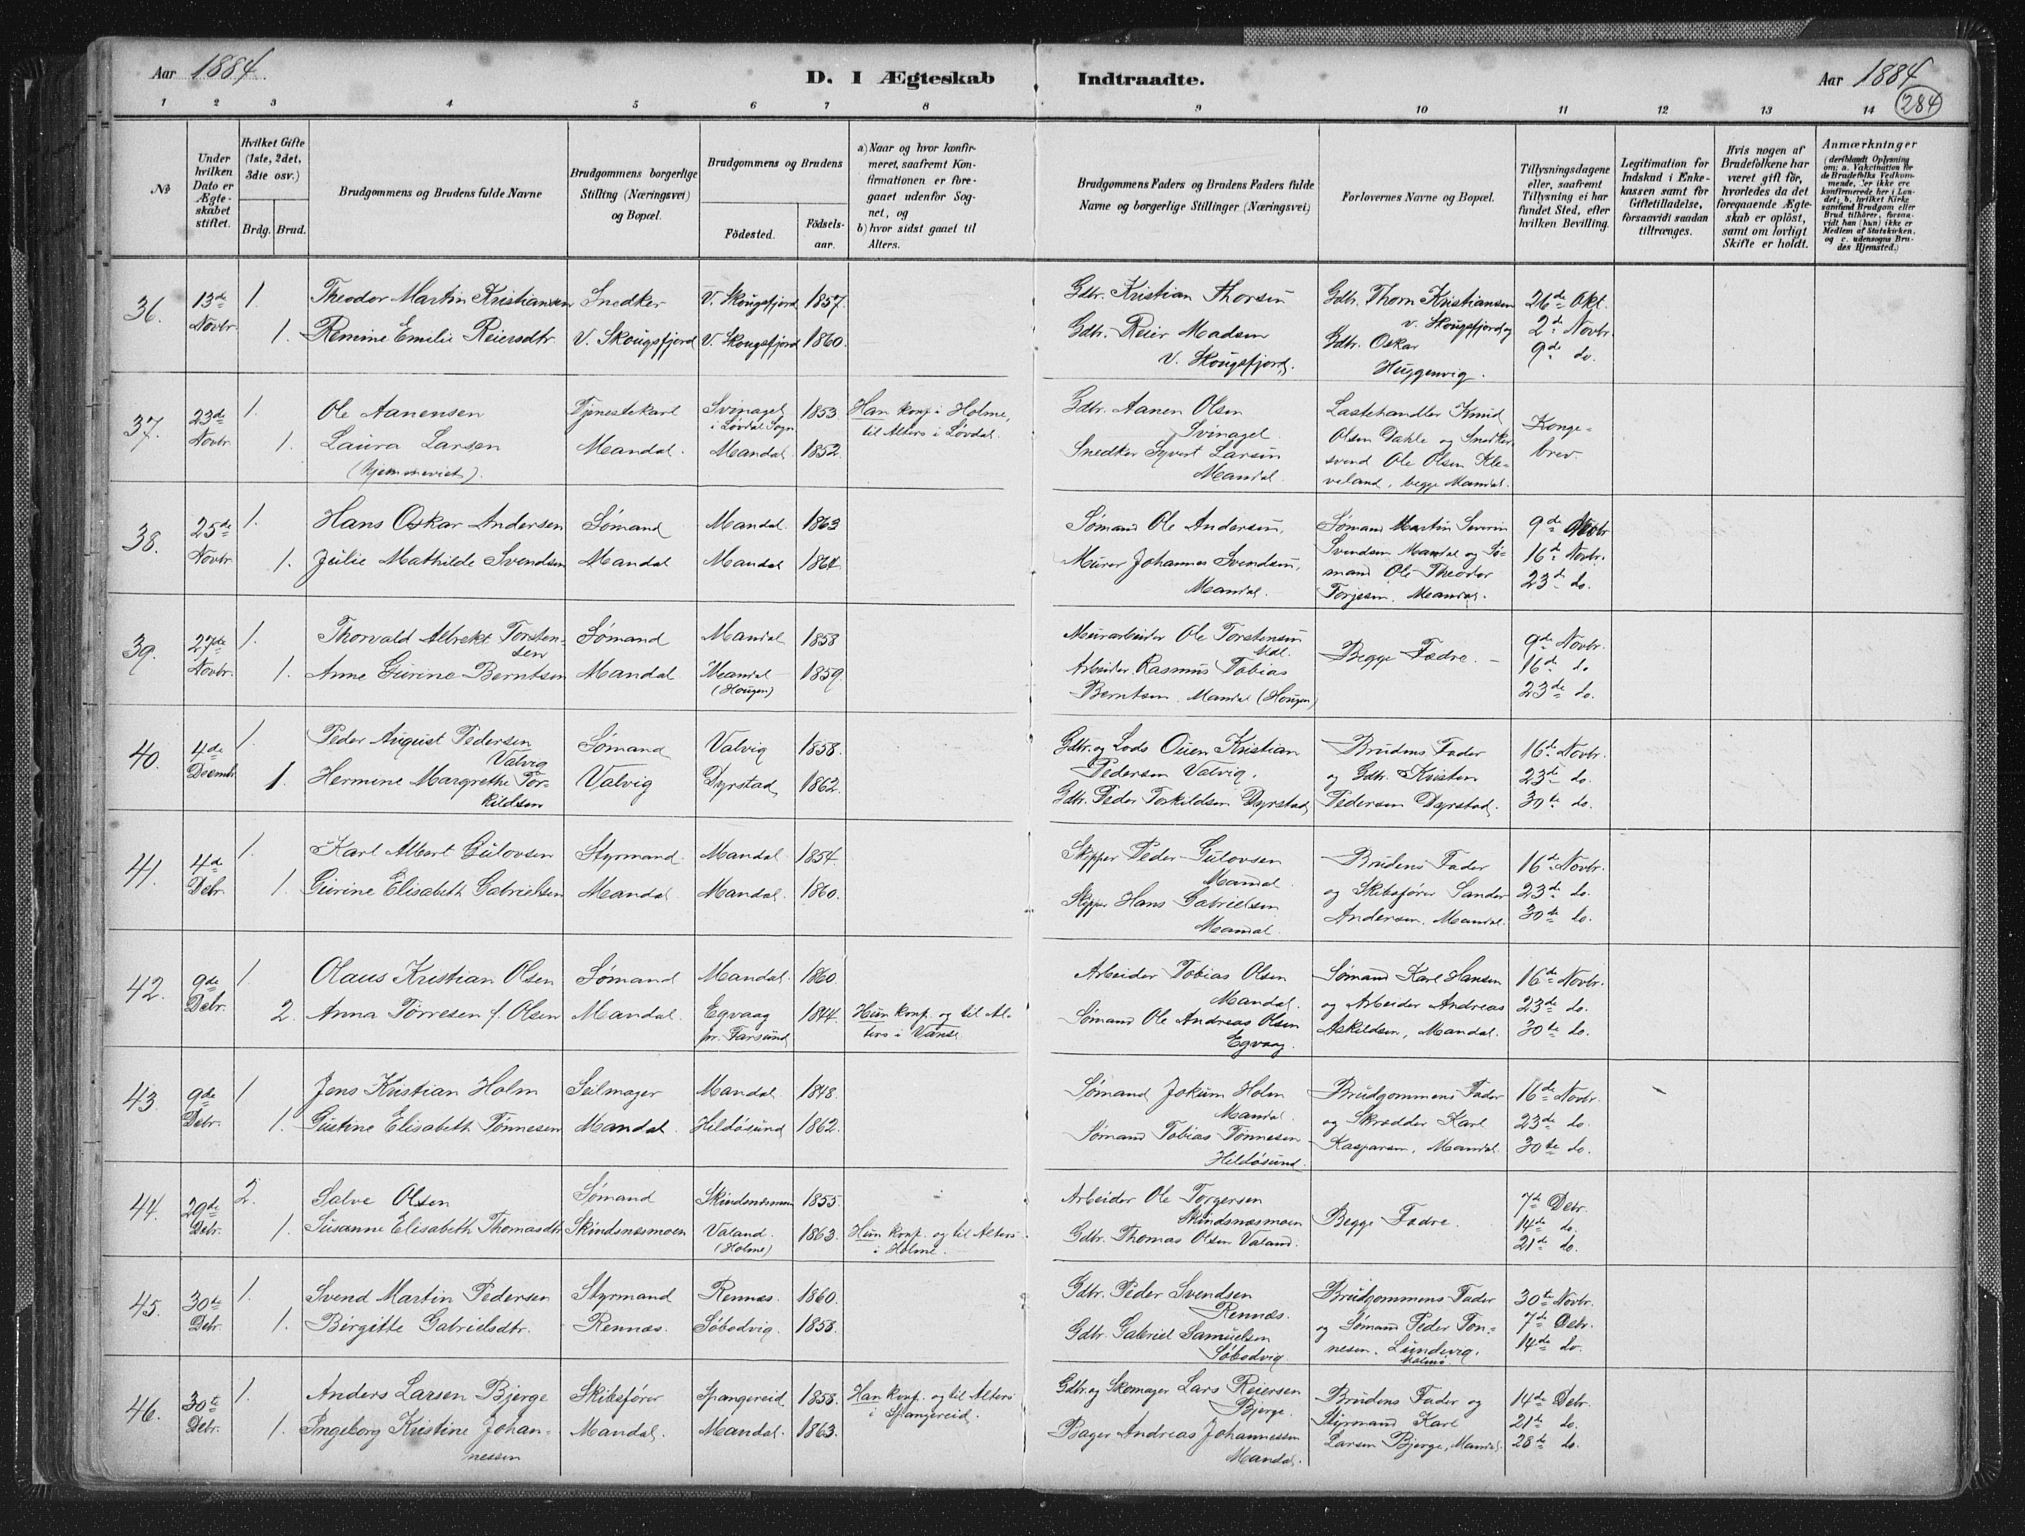 Aar 1884. D. I Ægteskab Indtraadte. Aar 1884
284
1 2 3 4 5 6 7 8 9 10 11 12 13 14
No
Under hvilken Dato er Ægteskabet stiftet.
Hvilket Gifte (1ste, 2det, 3die osv.)
Brdg. Brud.
Brudgommens og Brudens fulde Navne
Brudgommens borgerlige Stilling (Næringsvei) og Bopæl.
Brudgommens og Brudens
Fødested. Fødselsaar.
a) Naar og hvor konfirmeret, saafremt Konfirmationen er foregaaet udenfor Sognet, og
b) hvor sidst gaaet til Alters.
Brudgommens Faders og Brudens Faders fulde Navne og borgerlige Stillinger (Næringsvei)
Forlovernes Navne og Bopæl.
Tillysningsdagene eller, saafremt Tillysning ei har fundet Sted, efter hvilken Bevilling.
Legitimation for Indskud i Enkekassen samt for Giftetilladelse, forsaavidt saadan tiltrænges.
Hvis nogen af Brudefolkene har været gift før, hvorledes da det foregaaende Ægteskab er opløst, samt om lovligt Skifte er holdt.
Anmærkninger
(deriblandt Oplysning om: a. Vakcination for de Brudefolks Vedkommende, der ikke ere konfirmerede her i Landet; b. hvilket Kirkesamfund Brudgom eller Brud tilhører, forsaavidt han (hun) ikke er Medlem af Statskirken, og c. udensogns Brudes Hjemsted.)
36. 13de Novbr. 1. Theodor Martin Kristiansen Snedker V. Skougsfjord 1857. Gdbr. Kristian Thorsen Gdbr. Thorn Kristiansen 26de Okt.
v. Skougsfjord og 2de Novbr.
1. Remine Emilie Reiersdtr. V. Skougsfjord V. Skougsfjord 1860. Gdbr. Reier Madsen Gdbr. Oskar 9de do.
V. Skougsfjord. Huggenvig.
37. 23de Novbr 1. Ole Aanensen Tjenestekarl Svinagel i Løvdal Sogn 1853 Han konf. i Holme, til Alters i Løvdal. Gdbr. Aanen Olsen Svinagel Lastehandler Knud Konge-
1. Laura Larsen Mandal. Mandal. 1852. Snedker Syvert Larsen Olsen Dahle og Snedker brev.
(hjemmeviet). Mandal. svend Ole Olsen Kleveland, begge Mandal.
38. 25de Novbr 1. Hans Oskar Andersen Sømand Mandal 1863 Sømand Ole Andersen, Sømand Martin Severin 9de Novbr
1. Julie Mathilde Svendsen Mandal Mandal 1864. Murer Johannes Svendsen, Svendsen Mandal og Sø- 16de Novbr.
Mandal. mand Ole Theodor 23de do.
Torjesen, Mandal.
39. 27de Novbr. 1. Thorvald Albrekt Torstensen Sømand Mandal 1858 Murarbeider Ole Torstensen 9de Novbr.
1. Anne Gurine Berntsen Mandal Mandal (Hougen) 1859. Arbeider Rasmus Tobias Begge Fædre. 16de do
Berntsen, Mandal (Hougen) 23de do.
40. 4de Decmbr 1. Peder August Pedersen Valvig Sømand Valvig 1858. Gdbr. og Lods Ouen Kristian Brudens Fader 16de Novbr.
1. Hermine Margrethe Torkildsen Valvig Dyrstad 1862. Pedersen Valvig. og Gdbr. Kristen 23de do.
Gdbr. Peder Torkildsen Dyrstad Pedersen Dyrstad. 30te do.
41. 4de Debr. 1. Karl Albert Gulovsen Styrmand. Mandal. 1854. Skipper Peder Gulovsen Brudens Fader 16de Novbr.
Mandal. og Skibsfører Sander 23de do.
1. Gurine Elisabeth Gabrielsen Mandal. Mandal. 1860. Skipper Hans Gabrielsen Andersen, Mandal. 30te do.
Mandal.
42. 9de Debr. 1 Olaus Kristian Olsen Sømand Mandal. 1860. Arbeider Tobias Olsen Sømand Karl Hansen 16de Novbr.
Mandal. og Arbeider Andreas 23de do.
2. Anna Tørresen f. Olsen Mandal. Egvaag pr. Farsund 1844. Hun konf. og til Alters i Vanse. Sømand Ole Andreas Olsen Askildsen, Mandal. 30te do.
Egvaag.
43. 9de Debr. 1 Jens Kristian Holm Seilmager Mandal 1848. Sømand Jokum Holm Brudgommens Fader 16de Novbr.
Mandal. og Skrædder Karl 23de do.
1. Gustine Elisabeth Tønnesen Mandal. Hildøsund 1862. Sømand Tobias Tønnesen Kaspersen, Mandal. 30te do.
Hildøsund.
44. 29de Debr. 2. Salve Olsen Sømand Skindsnæsmoen 1855. Arbeider Ole Torgersen 7de Debr.
Skindsnæsmoen Begge Fædre. 14de do.
1. Susanne Elisabeth Thomasdtr Skindsnæsmoen Valand. (Holme) 1863. Hun konf. og til Alters i Holme. Gdbr. Thomas Olsen Valand. 21de do.
45. 30te Debr. 1. Svend Martin Pedersen Styrmand Rennæs. 1860. Gdbr. Peder Svendsen Brudgommens Fader 30te Novbr.
Rennæs. og Sømand Peder Ton- 7de Debr.
1. Birgitte Gabrielsdtr. Rennæs. Søbodvig. 1858. Gdbr. Gabriel Samuelsen nesen. Lundevig, 14de do.
Søbodvig.
46. 30te Debr. 1. Anders Larsen Bjerge Skibsfører Spangereid 1858. Han konf. og til Alters i Spangereid. Gdbr. og Skomager Lars Reiersen Brudens Fader og 14de Debr.
Bjerge. Styrmand Karl 21de do.
1. Ingeborg Kristine Johannessen Mandal. Mandal. 1863. Bager Andreas Johannessen Larsen Bjerge, Mandal 28de do.
Mandal.